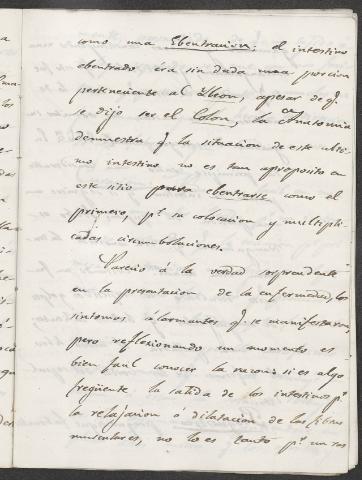 como una Ebentracion: el intestino
ebentrado éra sin duda una porcion
perteneciente al Ileon, apesar de q.
se dijo ser el Colon, la Anatomia
demuestra q. la situacion de este ulti-
mo intestino no es tam aproposito en
este sitio para ebentrarse como el
primero, p.r su colocacion y multipli-
cadas circumboluciones.
Parecio á la verdad sorprendente
en la presentacion de la enfermedad, los
sintomas alarmantes q. se manifestaron,
pero reflexionando un momento es
bien facil conocer la razon: si es algo
freqüente la salida de los intestinos p.r
la relajacion ó dilatacion de las fibras
musculares, no lo es tanto p.r un ras